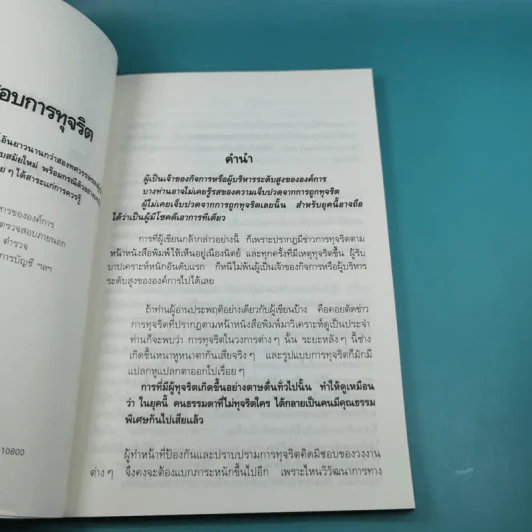 อบการทุจริต
อันยาวนานกว่าสองทศวรรษ
สมัยใหม่ พร้อมกรณีตัวอย่าง
ย ๆ ได้สาระแก่การควรรู้
ารขององค์การ
ตรวจสอบภายนอก
ตำรวจ
การบัญชี ฯลฯ
10800
คำนำ
ผู้เป็นเจ้าของกิจการหรือผู้บริหารระดับสูงขององค์การ
บางท่านอาจไม่เคยรู้รสของความเจ็บปวดจากการถูกทุจริต
ผู้ไม่เคยเจ็บปวดจากการถูกทุจริตเลยนั้น สำหรับยุคนี้อาจถือ
ได้ว่าเป็นผู้มีโชคดีเอาการทีเดียว
การที่ผู้เขียนกล้ากล่าวอย่างนี้ ก็เพราะปรากฏมีข่าวการทุจริตตาม
หน้าหนังสือพิมพ์ให้เห็นอยู่เนืองนิตย์ และทุกครั้งที่มีเหตุทุจริตขึ้น ผู้รับ
บาปเคราะห์หนักอันดับแรก ก็หนีไม่พ้นผู้เป็นเจ้าของกิจการหรือผู้บริหาร
ระดับสูงขององค์การไปได้เลย
ถ้าท่านผู้อ่านประพฤติอย่างเดียวกับผู้เขียนบ้าง คือคอยตัดข่าว
การทุจริตที่ปรากฏตามหน้าหนังสือพิมพ์มาวิเคราะห์ดูเป็นประจำ
ท่านก็จะพบว่า การทุจริตในวงการต่าง ๆ นั้น ระยะหลัง ๆ นี้ช่าง
เกิดขึ้นหนาหูหนาตากันเสียจริง ๆ และรูปแบบการทุจริตก็มักมี
แปลกหูแปลกตาออกไปเรื่อย ๆ
การที่มีผู้ทุจริตเกิดขึ้นอย่างดาษดื่นทั่วไปนั้น ทำให้ดูเหมือน
ว่า ในยุคนี้ คนธรรมดาที่ไม่ทุจริตใคร ได้กลายเป็นคนมีคุณธรรม
พิเศษกันไปเสียแล้ว
ผู้ทำหน้าที่ป้องกันและปราบปรามการทุจริตคิดมิชอบของวงงาน
ต่าง ๆ จึงคงจะต้องแบกภาระหนักขึ้นไปอีก เพราะไหนวิวัฒนาการทาง